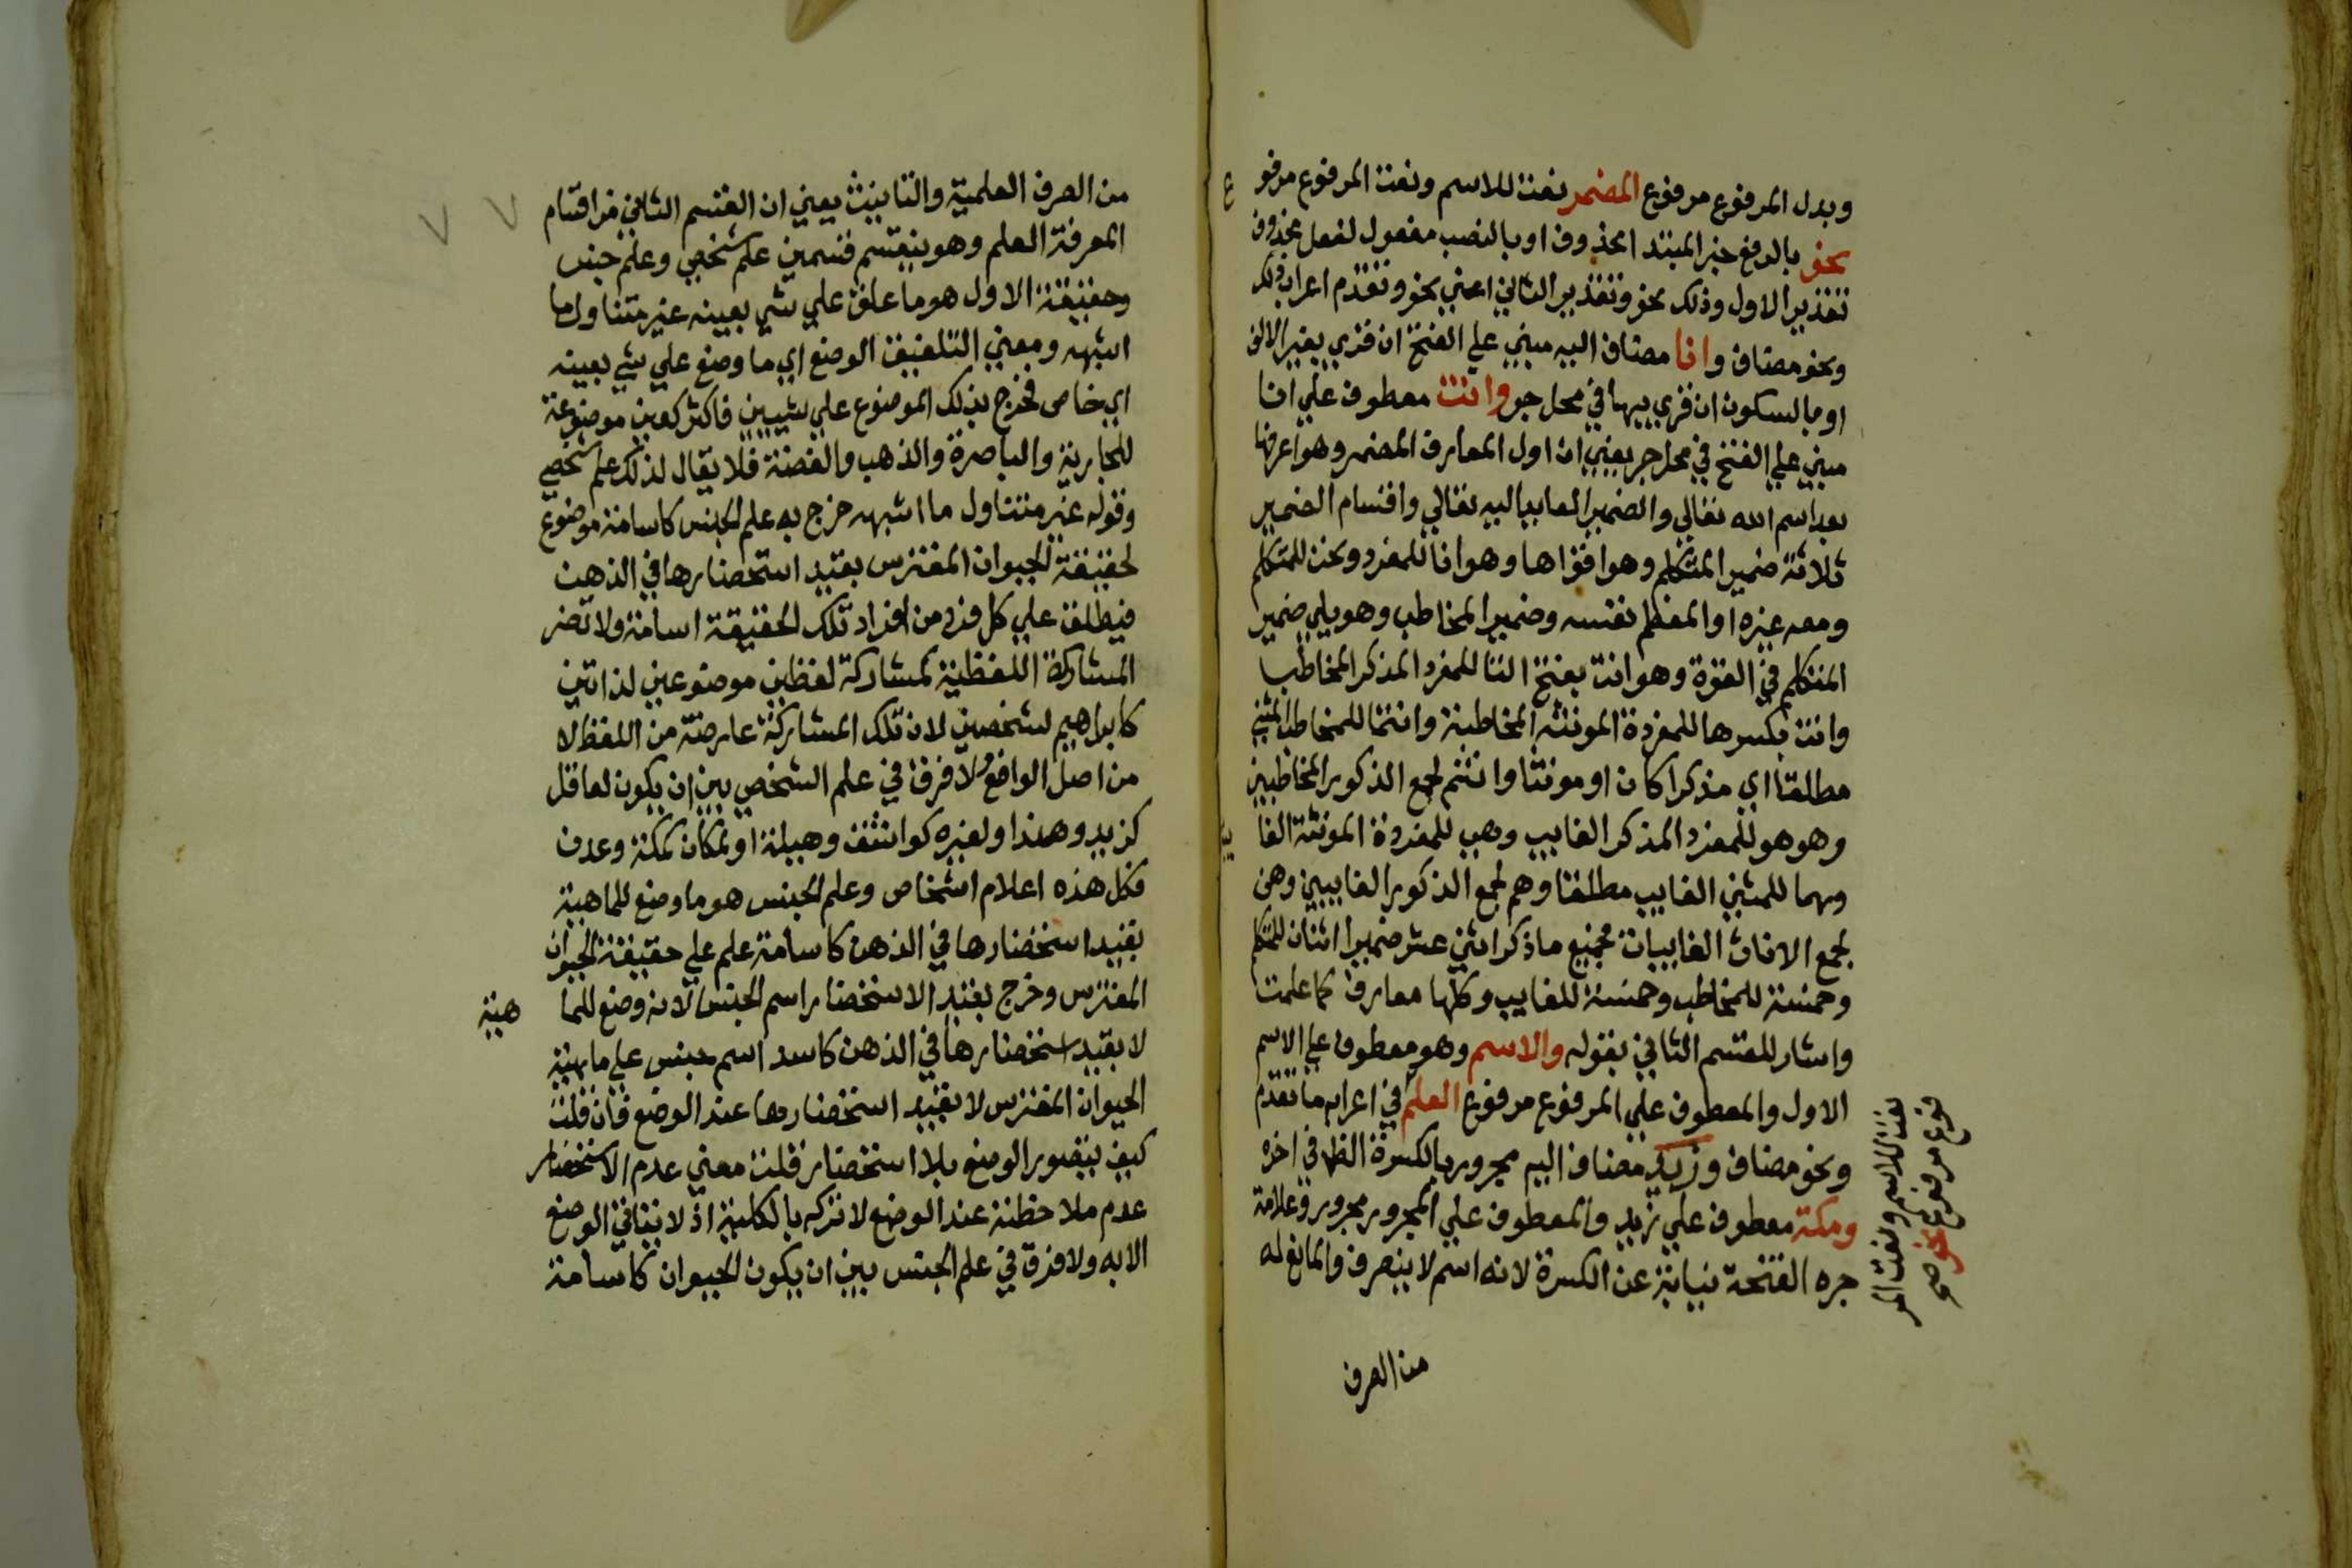 وبدل المرفوع مرفوع المضمر نعت للاسم ونعت المرفوع مرفو
ع
نحو بالرفع خبر المبتدا محذوف او بالنصب مفعول لفعل محذوف
تقدير الاول وذلك نحو وتقدير الثاني اعني نحو وتقدم اعراب ذلك
ونحو مضاف وانا مضاف اليه مبني علي الفتح ان قري بغير الالف
او بالسكون ان قري بها في محل جر وانت معطوف علي انا
مبني علي الفتح في محل جر يعني ان اول المعارف المضمر وهو اعرفها
بعد اسم الله تعالي والضمير العايد اليه تعالي واقسام الضمير
ثلاثة ضمير المتكلم وهو اقواها وهو انا للمفرد ونحن للمتكلم
ومعه غيره او المعظم نفسه وضمير المخاطب وهو يلي ضمير
المتكلم في القوة وهو انت بفتح التا للمفرد المذكر المخاطب
وانت بكسرها للمفردة المونثه المخاطبة وانتما للمخاطب المثني
مطلقا اي مذكرا كان او مونثا وانتم لجمع الذكور المخاطبين
وهو هو للمفرد المذكر الغايب وهي للمفردة المونثة الغا
وهما للمثني الغايب مطلقا وهم لجمع الذكور الغايبين وهن
لجمع الاناث الغايبات فجميع ما ذكر اثني عشر ضميرا اثنان للمتكلم
وخمسة للمخاطب وخمسة للغايب وكلها معارف كما علمت
واشار للقسم الثاني بقوله والاسم وهو معطوف علي الاسم
الاول والمعطوف علي المرفوع مرفوع العلم في اعرابه ما تقدم
نعت للاسم ونعت المر
فوع مرفوع نحو صح
ونحو مضاف وزيد مضاف اليه مجرور بالكسرة الظ في اخره
ومكة معطوف علي زيد والمعطوف علي المجرور مجرور وعلامة
جره الفتحة نيابة عن الكسرة لانه اسم لا ينصرف والمانع له
من الصرف
من الصرف العلمية والتانيث يعني ان القسم الثاني من اقسام
المعرفة العلم وهو ينقسم قسمين علم شخصي وعلم جنس
وحقيقة الاول هو ما علق علي شي بعينه غير متناول ما
اشبهه ومعني التعليق الوضع اي ما وضع علي شي بعينه
اي خاص فخرج بذلك الموضوع علي شيئين فاكثر كعين موضوعة
للجارية والباصرة والذهب والفضة فلا يقال لذلك علم شخصي
وقوله غير متناول ما اشبهه خرج به علم الجنس كاسامة موضوع
لحقيقة الحيوان المفترس بقيد استحضارها في الذهن
فيطلق علي كل فرد من افراد تلك الحقيقة اسامة ولا تضر
المشاركة اللفظية كمشاركة لفظين موضوعين لذاتين
كابراهيم لشخصين لان تلك المشاركة عارضة من اللفظ لا
من اصل الواضع ولا فرق في علم الشخصي بين ان يكون لعاقل
كزيد وهندا ولغيره كواشق وهيلة او لمكان كمكة وعدن
فكل هذه اعلام اشخاص وعلم الجنس هو ما وضع للماهية
بقيد استحضارها في الذهن كاسامة علم علي حقيقة الحيوان
المفترس وخرج بقيد الاستحضار اسم الجنس لانه وضع للما هية
لا بقيد استحضارها في الذهن كاسد اسم جنس علي ماهية
الحيوان المفترس لا بقيد استحضارها عند الوضع فان قلت
كيف يتصور الوضع بلا استحضار قلت معني عدم الاستحضار
عدم ملاحظته عند الوضع لا تركه بالكلية اذ لا يتاتي الوضع
الا به ولا فرق في علم الجنس بين ان يكون لحيوان كاسامة